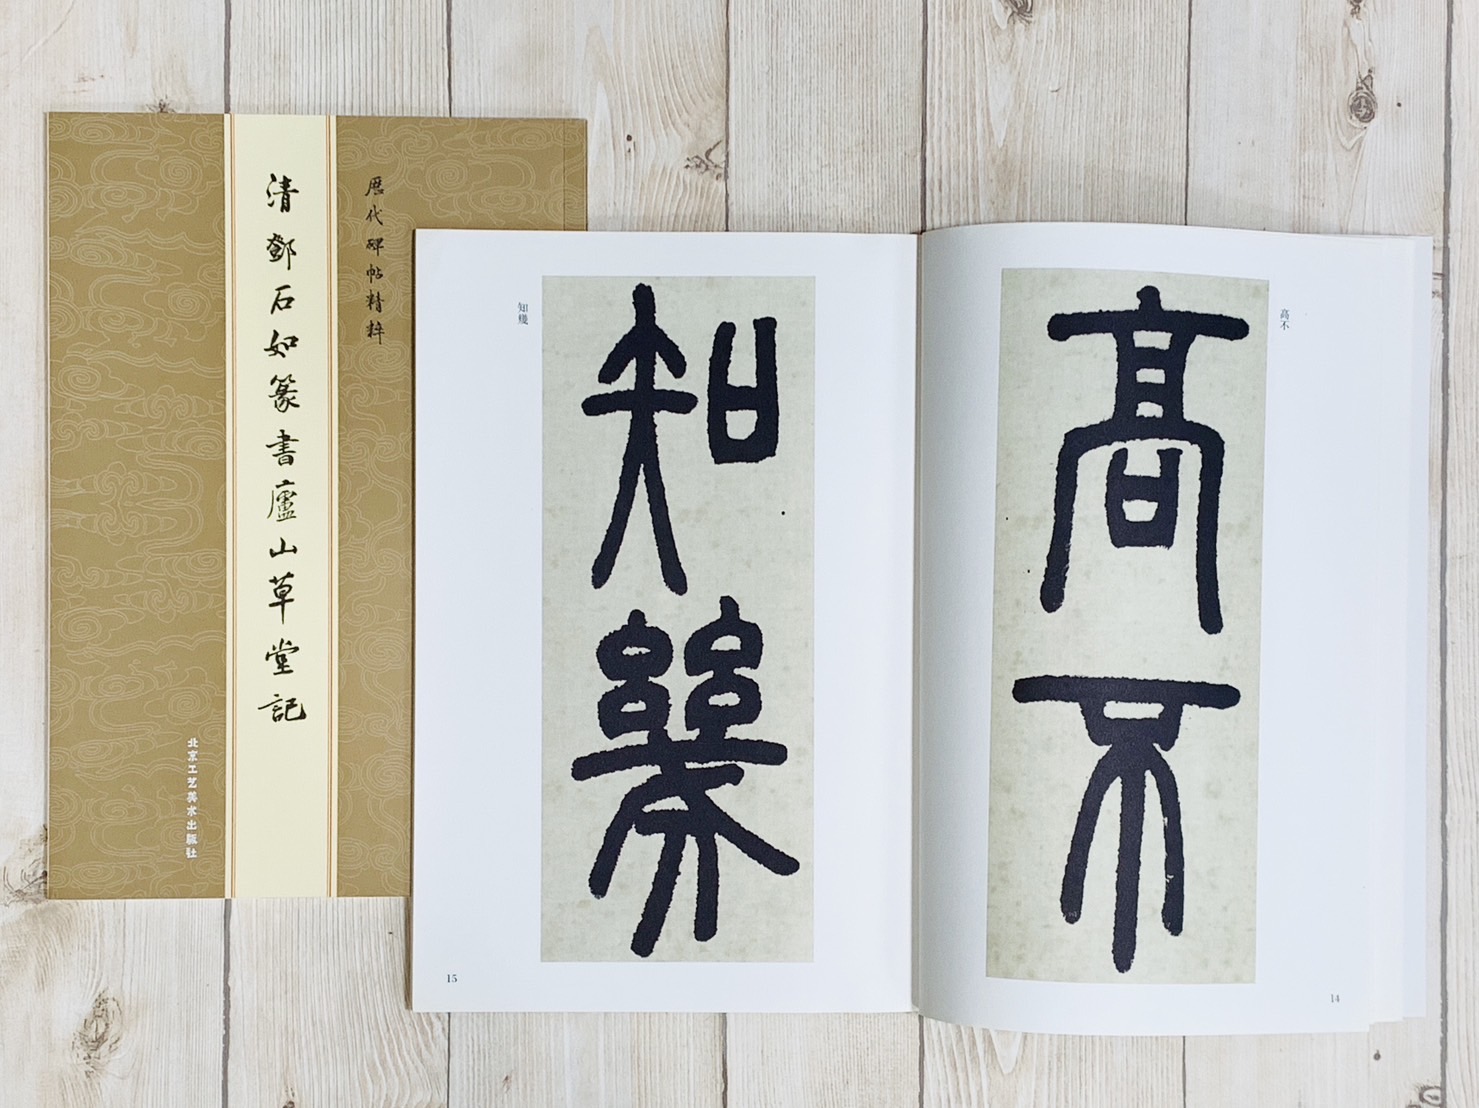 歷代碑帖精粹
清鄧石如篆書廬山草堂記
北京工艺美术出版社
高不
高不
14
知幾
知幾
15